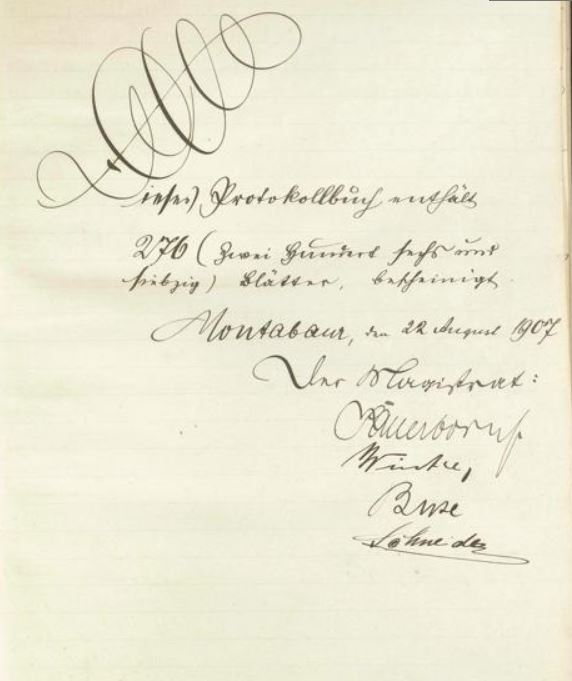 Dieses Protokollbuch enthält
276 (Zwei Hundert sechs und
siebzig) Blätter, bescheinigt
Montabaur, den 22 August 1907
Der Magistrat:
Sauerborn
Buse
Schneider